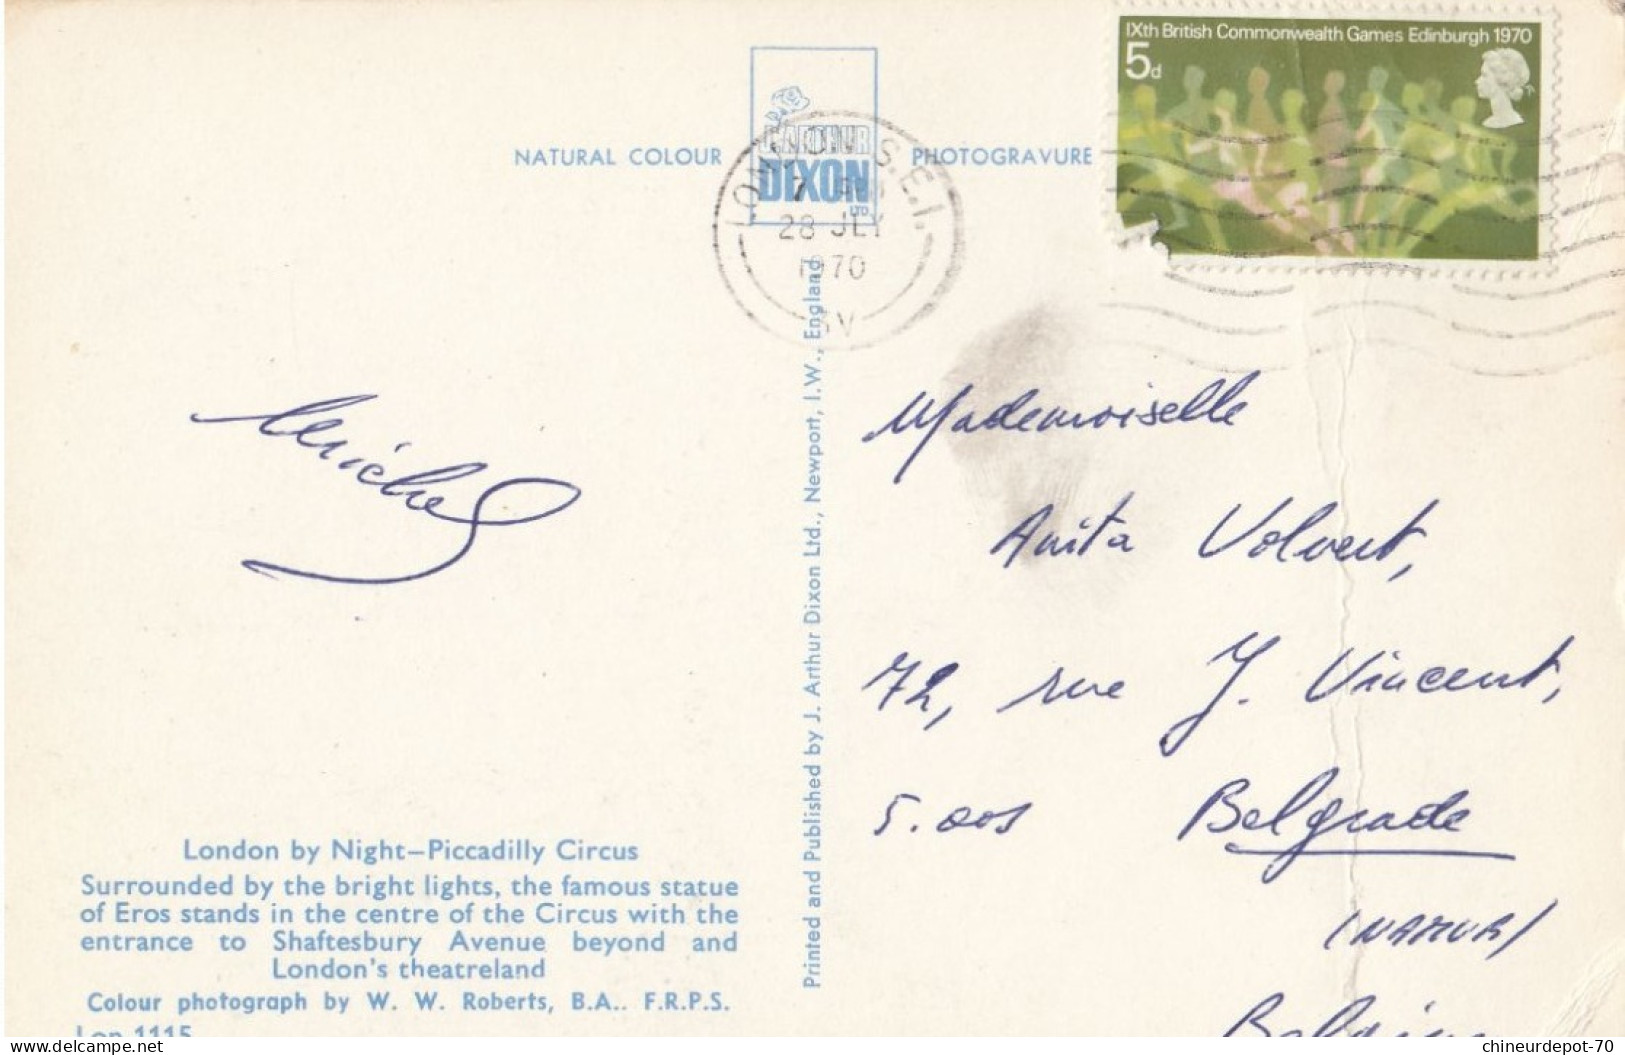 IXth British Commonwealth Games Edinburgh 1970
5d
NATURAL COLOUR
J. ARTHUR
DIXON
LTD
PHOTOGRAVURE
LONDON S.E.1.
7
28 JLY
1970
Michel
Mademoiselle
Anita Volvert,
72, rue J. Vincent,
5.001 Belgrade
(NAMUR)
Belgique
Printed and Published by J. Arthur Dixon Ltd., Newport, I.W., England
London by Night–Piccadilly Circus
Surrounded by the bright lights, the famous statue
of Eros stands in the centre of the Circus with the
entrance to Shaftesbury Avenue beyond and
London's theatreland
Colour photograph by W. W. Roberts, B.A.. F.R.P.S.
Lon 1115
chineurdepot-70